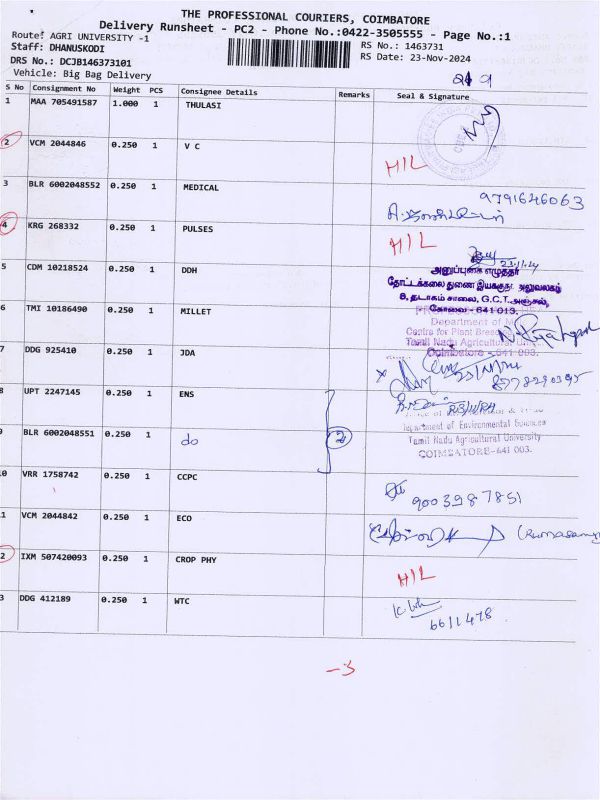 THE PROFESSIONAL COURIERS, COIMBATORE
Delivery Runsheet - PC2 - Phone No.:0422-3505555 - Page No.:1
Route: AGRI UNIVERSITY -1
Staff: DHANUSKODI
RS No.: 1463731
DRS No.: DCJB146373101
RS Date: 23-Nov-2024
Vehicle: Big Bag Delivery
S No Consignment No Weight PCS Consignee Details Remarks Seal & Signature
1 MAA 705491587 1.000 1 THULASI
2 VCM 2044846 0.250 1 V C H/L
3 BLR 6002048552 0.250 1 MEDICAL 9791646063
4 KRG 268332 0.250 1 PULSES H/L
23/11/24
5 CDM 10218524 0.250 1 DDH
அனுப்புகை எழுத்தர்
தோட்டக்கலை துணை இயக்குநர் அலுவலகம்
8, தடாகம் சாலை, G.C.T. அஞ்சல்,
கோவை - 641 013.
6 TMI 10186490 0.250 1 MILLET
Department of
Centre for Plant Breeding
Tamil Nadu Agricultural Univ.
Coimbatore - 641 003.
7 DDG 925410 0.250 1 JDA
8778290395
8 UPT 2247145 0.250 1 ENS
23/11/24
Department of Environmental Sciences
9 BLR 6002048551 0.250 1 do 2
Tamil Nadu Agricultural University
COIMBATORE-641 003.
10 VRR 1758742 0.250 1 CCPC 9003987851
11 VCM 2044842 0.250 1 ECO
12 IXM 507420093 0.250 1 CROP PHY H/L
13 DDG 412189 0.250 1 WTC
6611478
-3